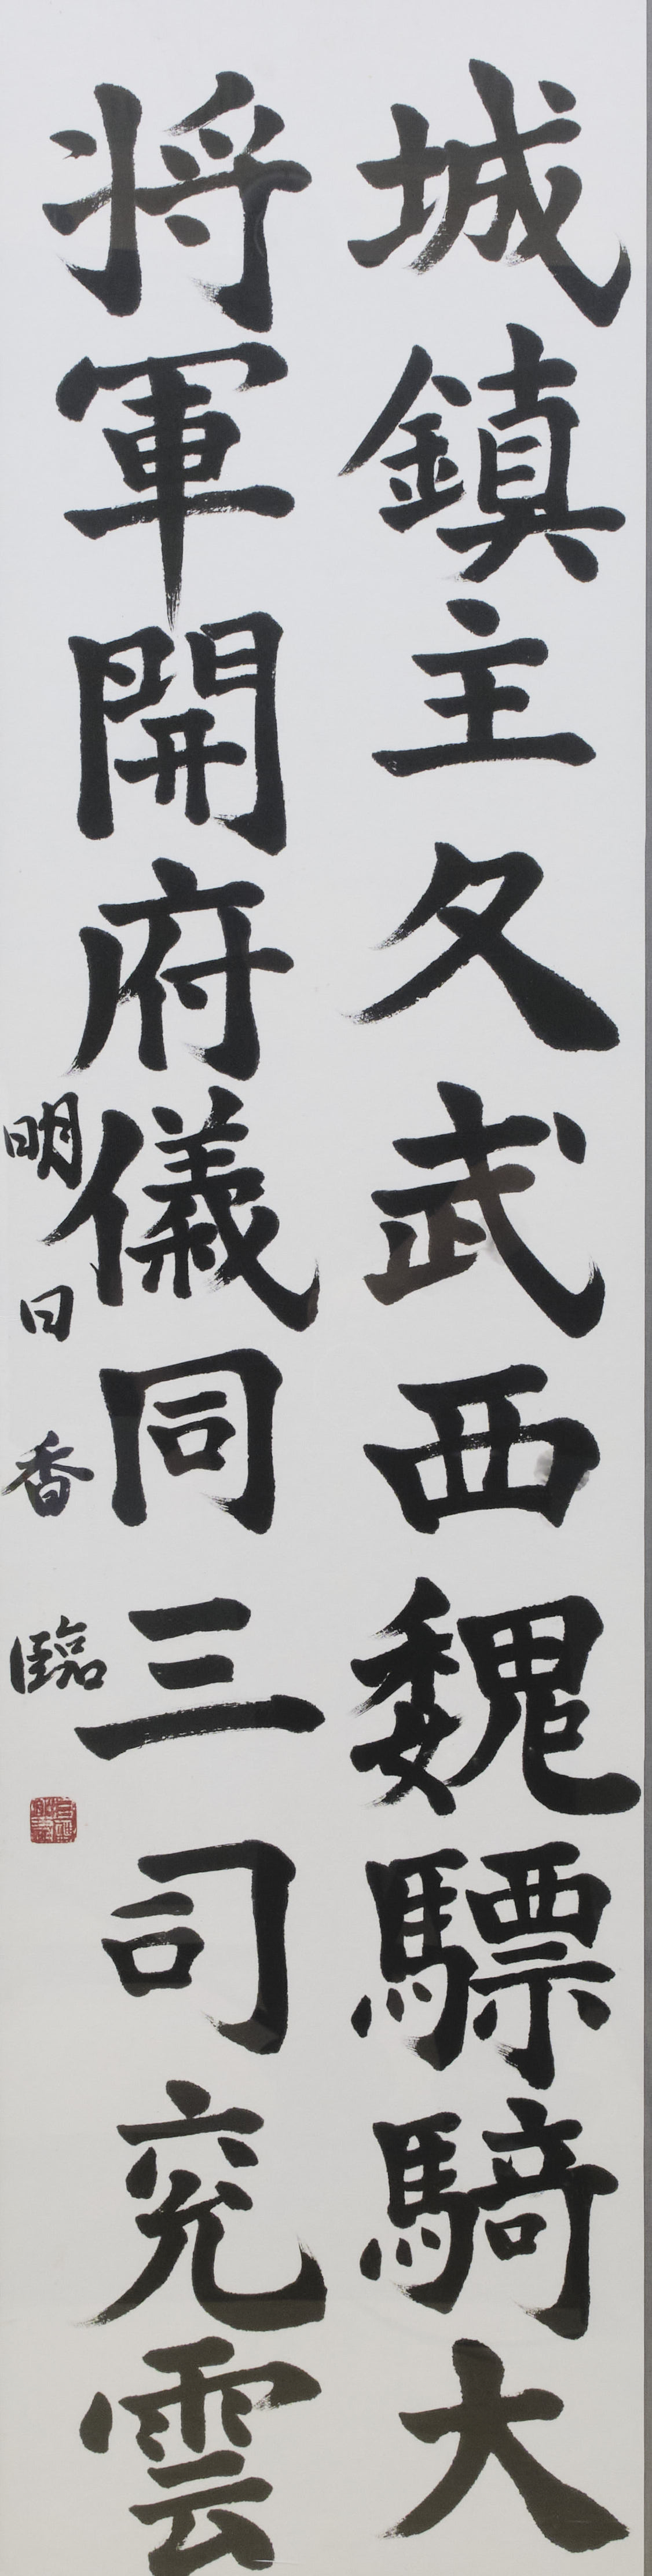 城鎮主久武西魏驃騎大
将軍開府儀同三司兖雲
明日香臨